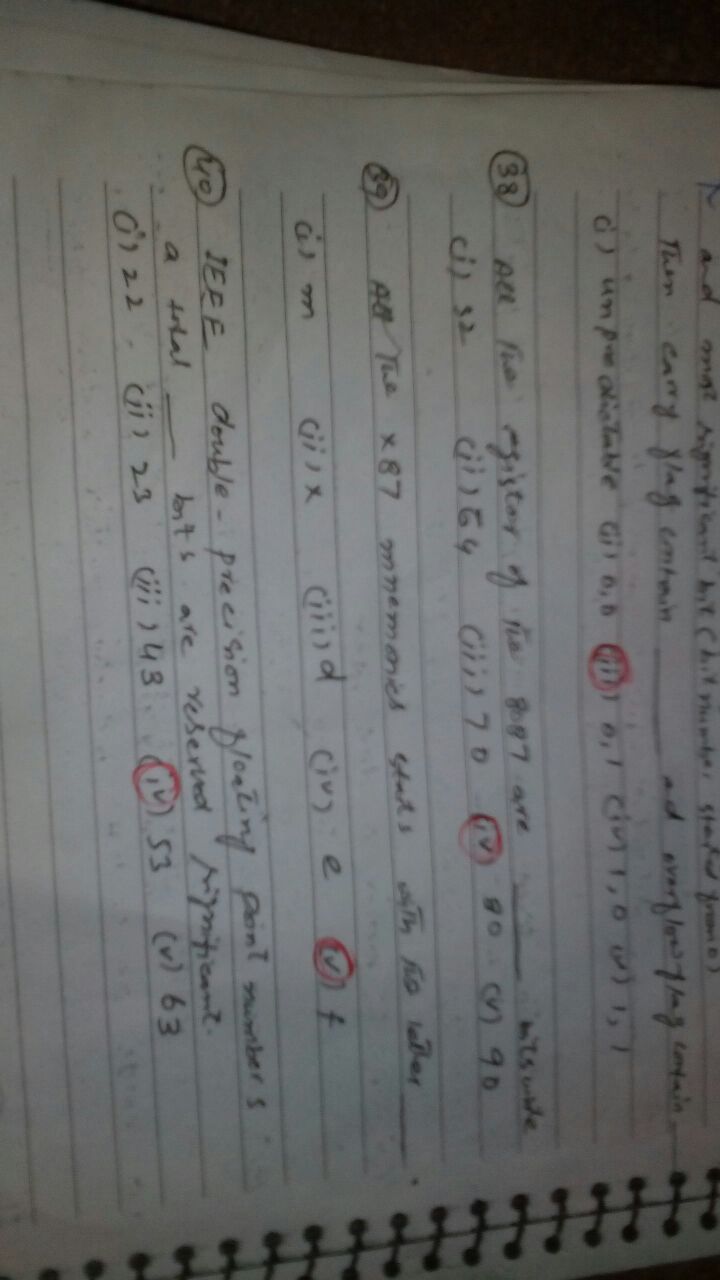 and most significant bit (bit number started from 0)
Then carry flag contain ____ and overflow flag contain
(i) unpredictable (ii) 0,0 (iii) 0,1 (iv) 1,0 (v) 1,1
(38) All the register of the 8087 are ____ bits wide
(i) 32 (ii) 64 (iii) 70 (iv) 80 (v) 90
(39) All the x87 mnemonics starts with the letter ____.
(i) m (ii) x (iii) d (iv) e (v) f
(40) IEEE double-precision floating point numbers
a total ____ bits are reserved significant.
(i) 22 (ii) 23 (iii) 43 (iv) 53 (v) 63